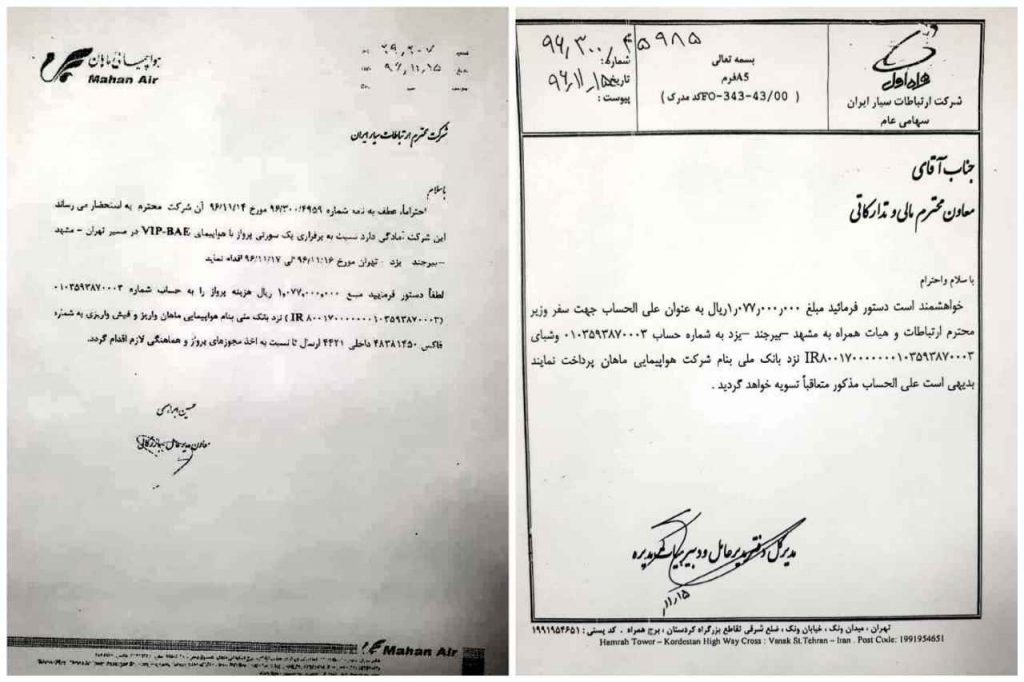 هواپیمائی ماهان
Mahan Air
۹۶,۱۱,۱۵
شرکت محترم ارتباطات سیار ایران
باسلام
احتراماً، عطف به نامه شماره ۹۶/۳۰۰/۴۹۵۹ مورخ ۹۶/۱۱/۱۴ آن شرکت محترم به استحضار می رساند
این شرکت آمادگی دارد نسبت به برقراری یک سورتی پرواز با هواپیمای VIP-BAE در مسیر تهران - مشهد
-بیرجند یزد - تهران مورخ ۹۶/۱۱/۱۶ الی ۹۶/۱۱/۱۷ اقدام نماید
لطفاً دستور فرمایید مبلغ ۱,۰۷۷,۰۰۰,۰۰۰ ریال هزینه پرواز را به حساب شماره ۰۱۰۳۵۹۳۸۷۰۰۰۳
(IR ۸۰۰۱۷۰۰۰۰۰۰۰۱۰۳۵۹۳۸۷۰۰۰۳) نزد بانک ملی بنام هواپیمایی ماهان واریز و فیش واریزی به شماره
فاکس ۴۸۳۸۱۴۵۰ داخلی ۴۴۲۱ ارسال تا نسبت به اخذ مجوزهای پرواز و هماهنگی لازم اقدام گردد.
معاون مدیرعامل
Mahan Air
همراه اول
شرکت ارتباطات سیار ایران
سهامی عام
بسمه تعالی
فرم A5
( کد مدرک FO-343-43/00 )
شماره: ۹۶,۳۰۰,۴۵۹۸۵
تاریخ: ۹۶,۱۱,۱۵
پیوست :
جناب آقای
معاون محترم مالی و تدارکاتی
با سلام واحترام
خواهشمند است دستور فرمائید مبلغ ۱,۰۷۷,۰۰۰,۰۰۰ریال به عنوان علی الحساب جهت سفر وزیر
محترم ارتباطات و هیات همراه به مشهد -بیرجند -یزد به شماره حساب ۰۱۰۳۵۹۳۸۷۰۰۰۳ وشبای
IR۸۰۰۱۷۰۰۰۰۰۰۰۱۰۳۵۹۳۸۷۰۰۰۳ نزد بانک ملی بنام شرکت هواپیمایی ماهان پرداخت نمایند
بدیهی است علی الحساب مذکور متعاقباً تسویه خواهد گردید .
مدیرکل دفتر مدیرعامل و دبیر هیات مدیره
۱۱,۱۵
تهران ، میدان ونک ، خیابان ونک ، ضلع شرقی تقاطع بزرگراه کردستان ، برج همراه . کد پستی : ۱۹۹۱۹۵۴۶۵۱
Hamrah Towor – Kordestan High Way Cross : Vanak St.Tehran – Iran . Post Code: 1991954651